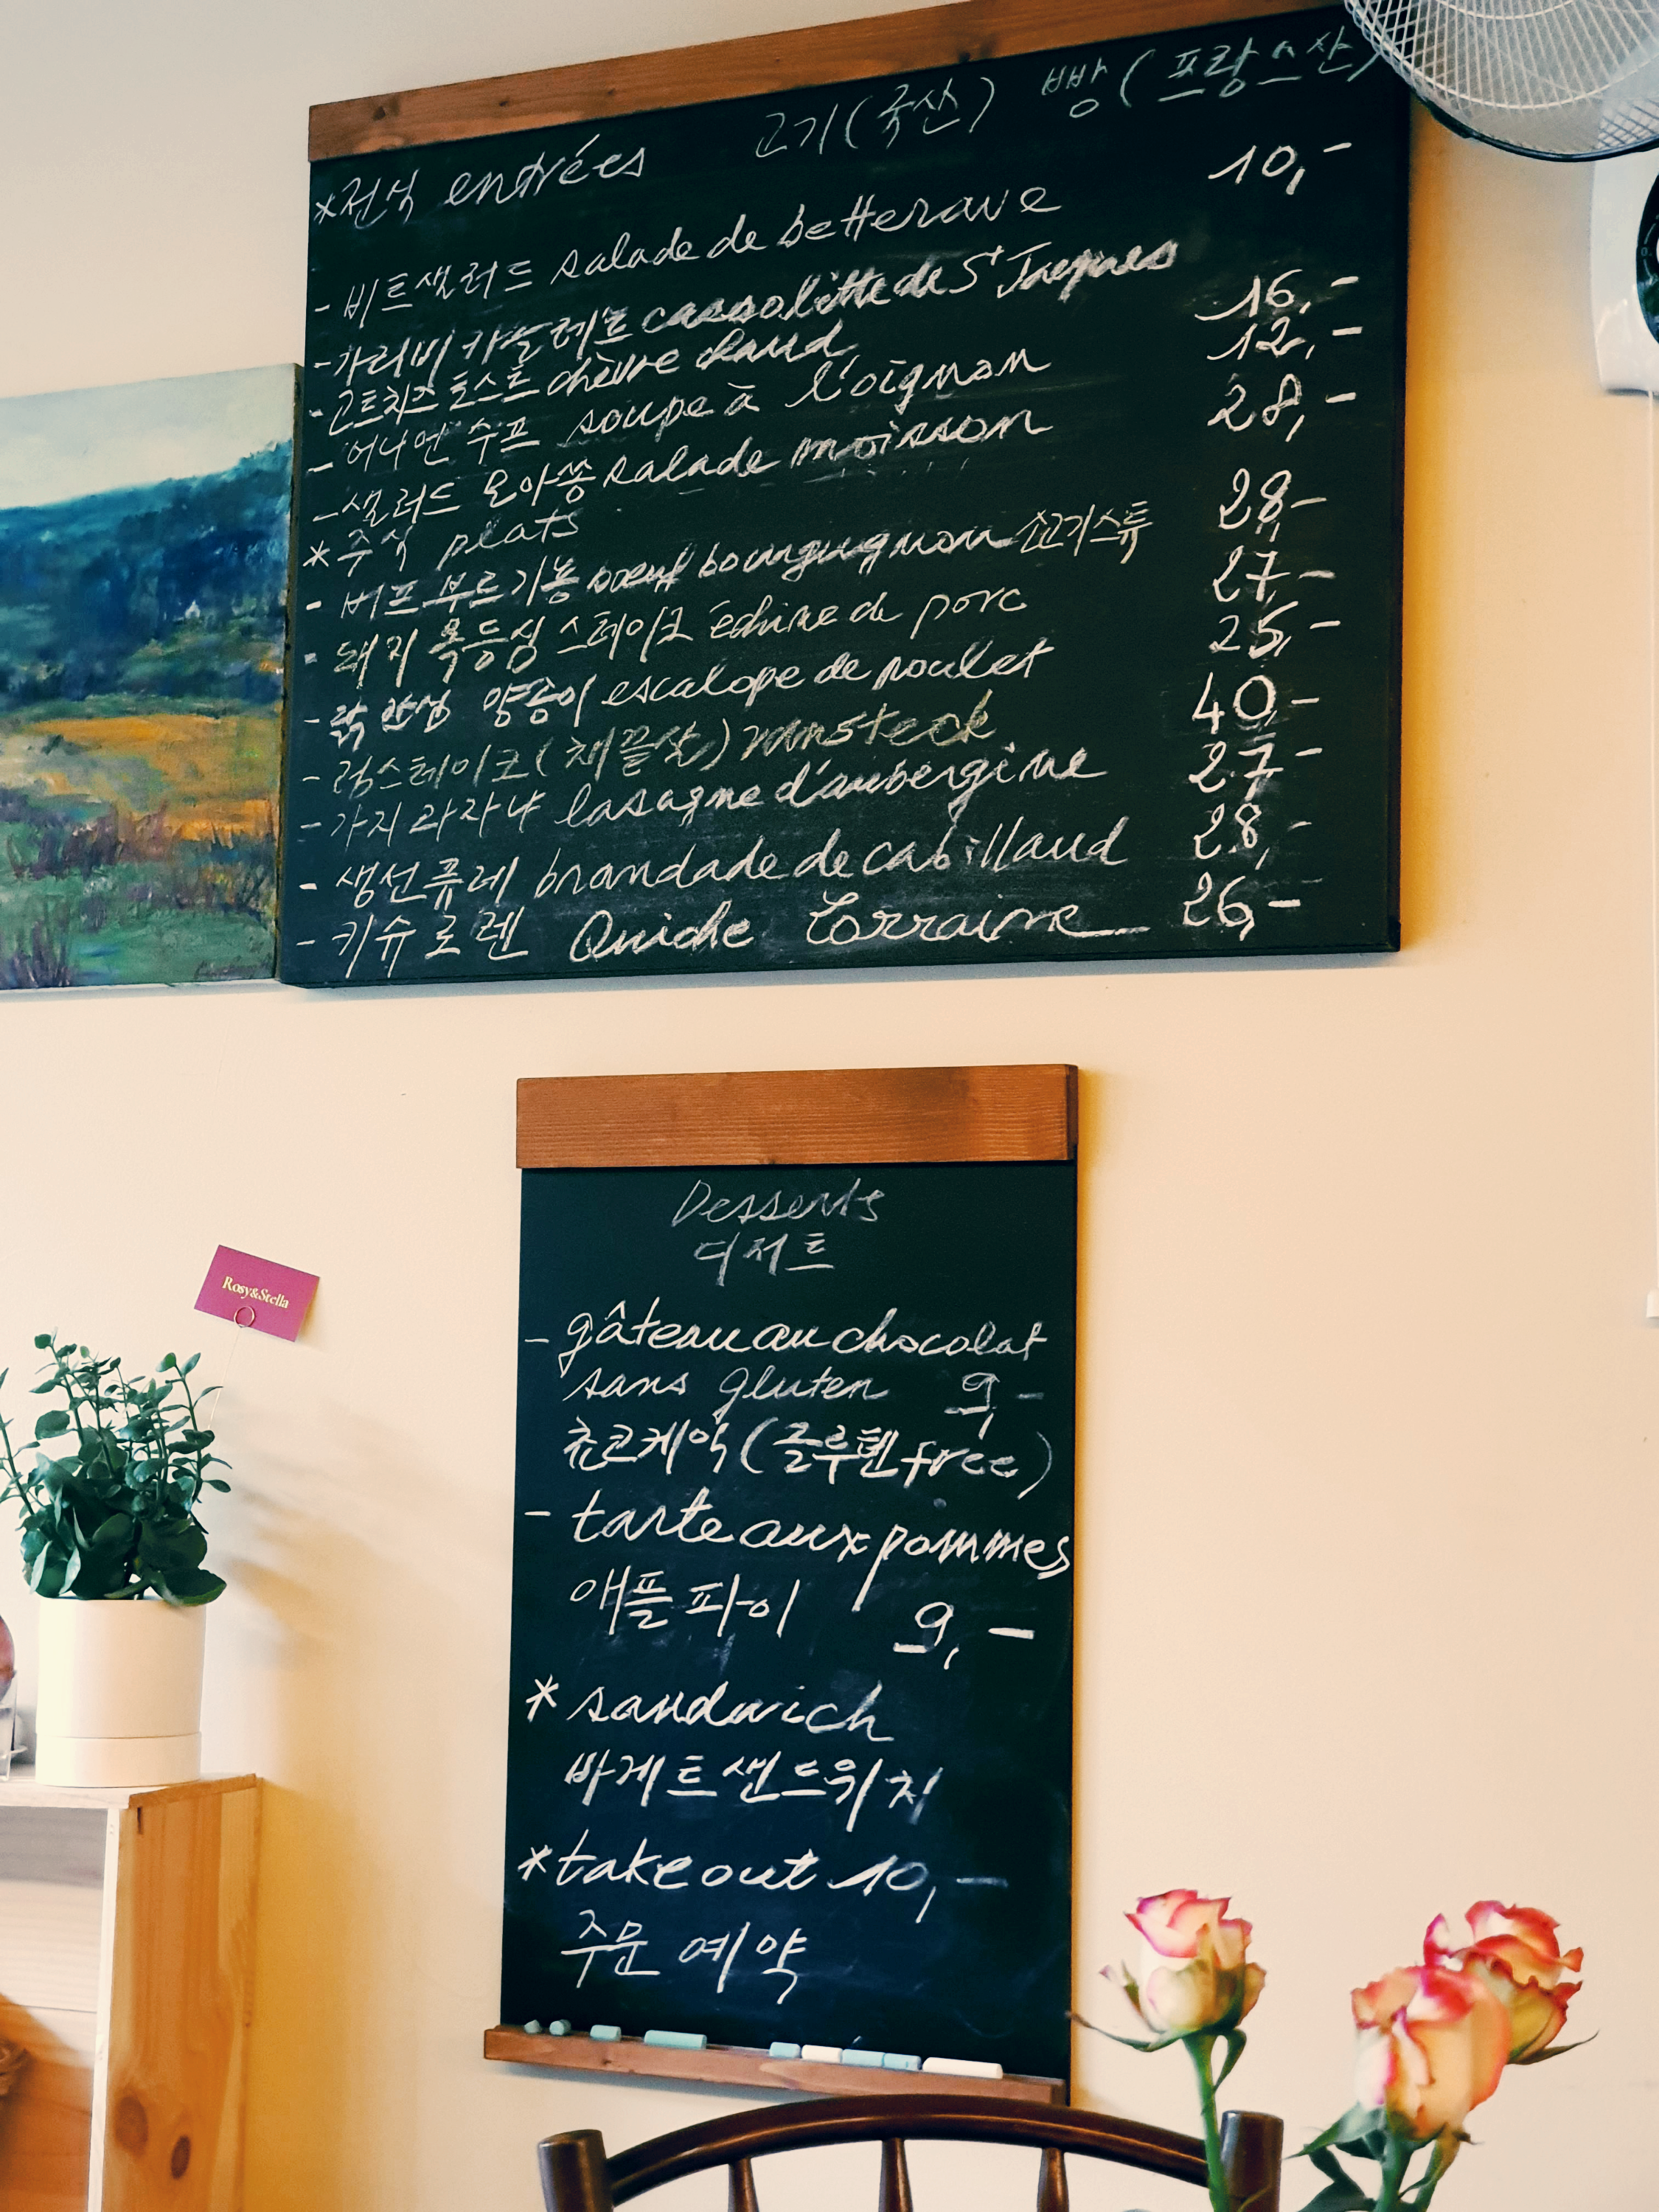 고기(국산) 빵(프랑스산)
*전식 entrées
- 비트샐러드 salade de betterave 10,-
- 가리비 카솔레트 cassolette de St Jacques
- 고트치즈 토스트 chèvre chaud 16,-
- 어니언 수프 soupe à l'oignon 12,-
- 샐러드 모아쏭 salade moisson 28,-
* 주식 plats
- 버프 부르기뇽 boeuf bourguignon 소고기스튜 28,-
- 돼지 목등심 스테이크 échine de porc 27,-
- 닭 안심 양송이 escalope de poulet 25,-
- 럼스테이크(채끝살) rumsteck 40,-
- 가지 라자냐 lasagne d'aubergine 27,-
- 생선퓨레 brandade de cabillaud 28,-
- 키슈로렌 Quiche Lorraine 26,-
Desserts
디저트
- gâteau au chocolat
sans gluten 9,-
쵸코케익(글루텐free)
- tarte aux pommes
애플파이 9,-
* sandwich
바게트샌드위치
*take out 10,-
주문 예약
Rosy&Stella